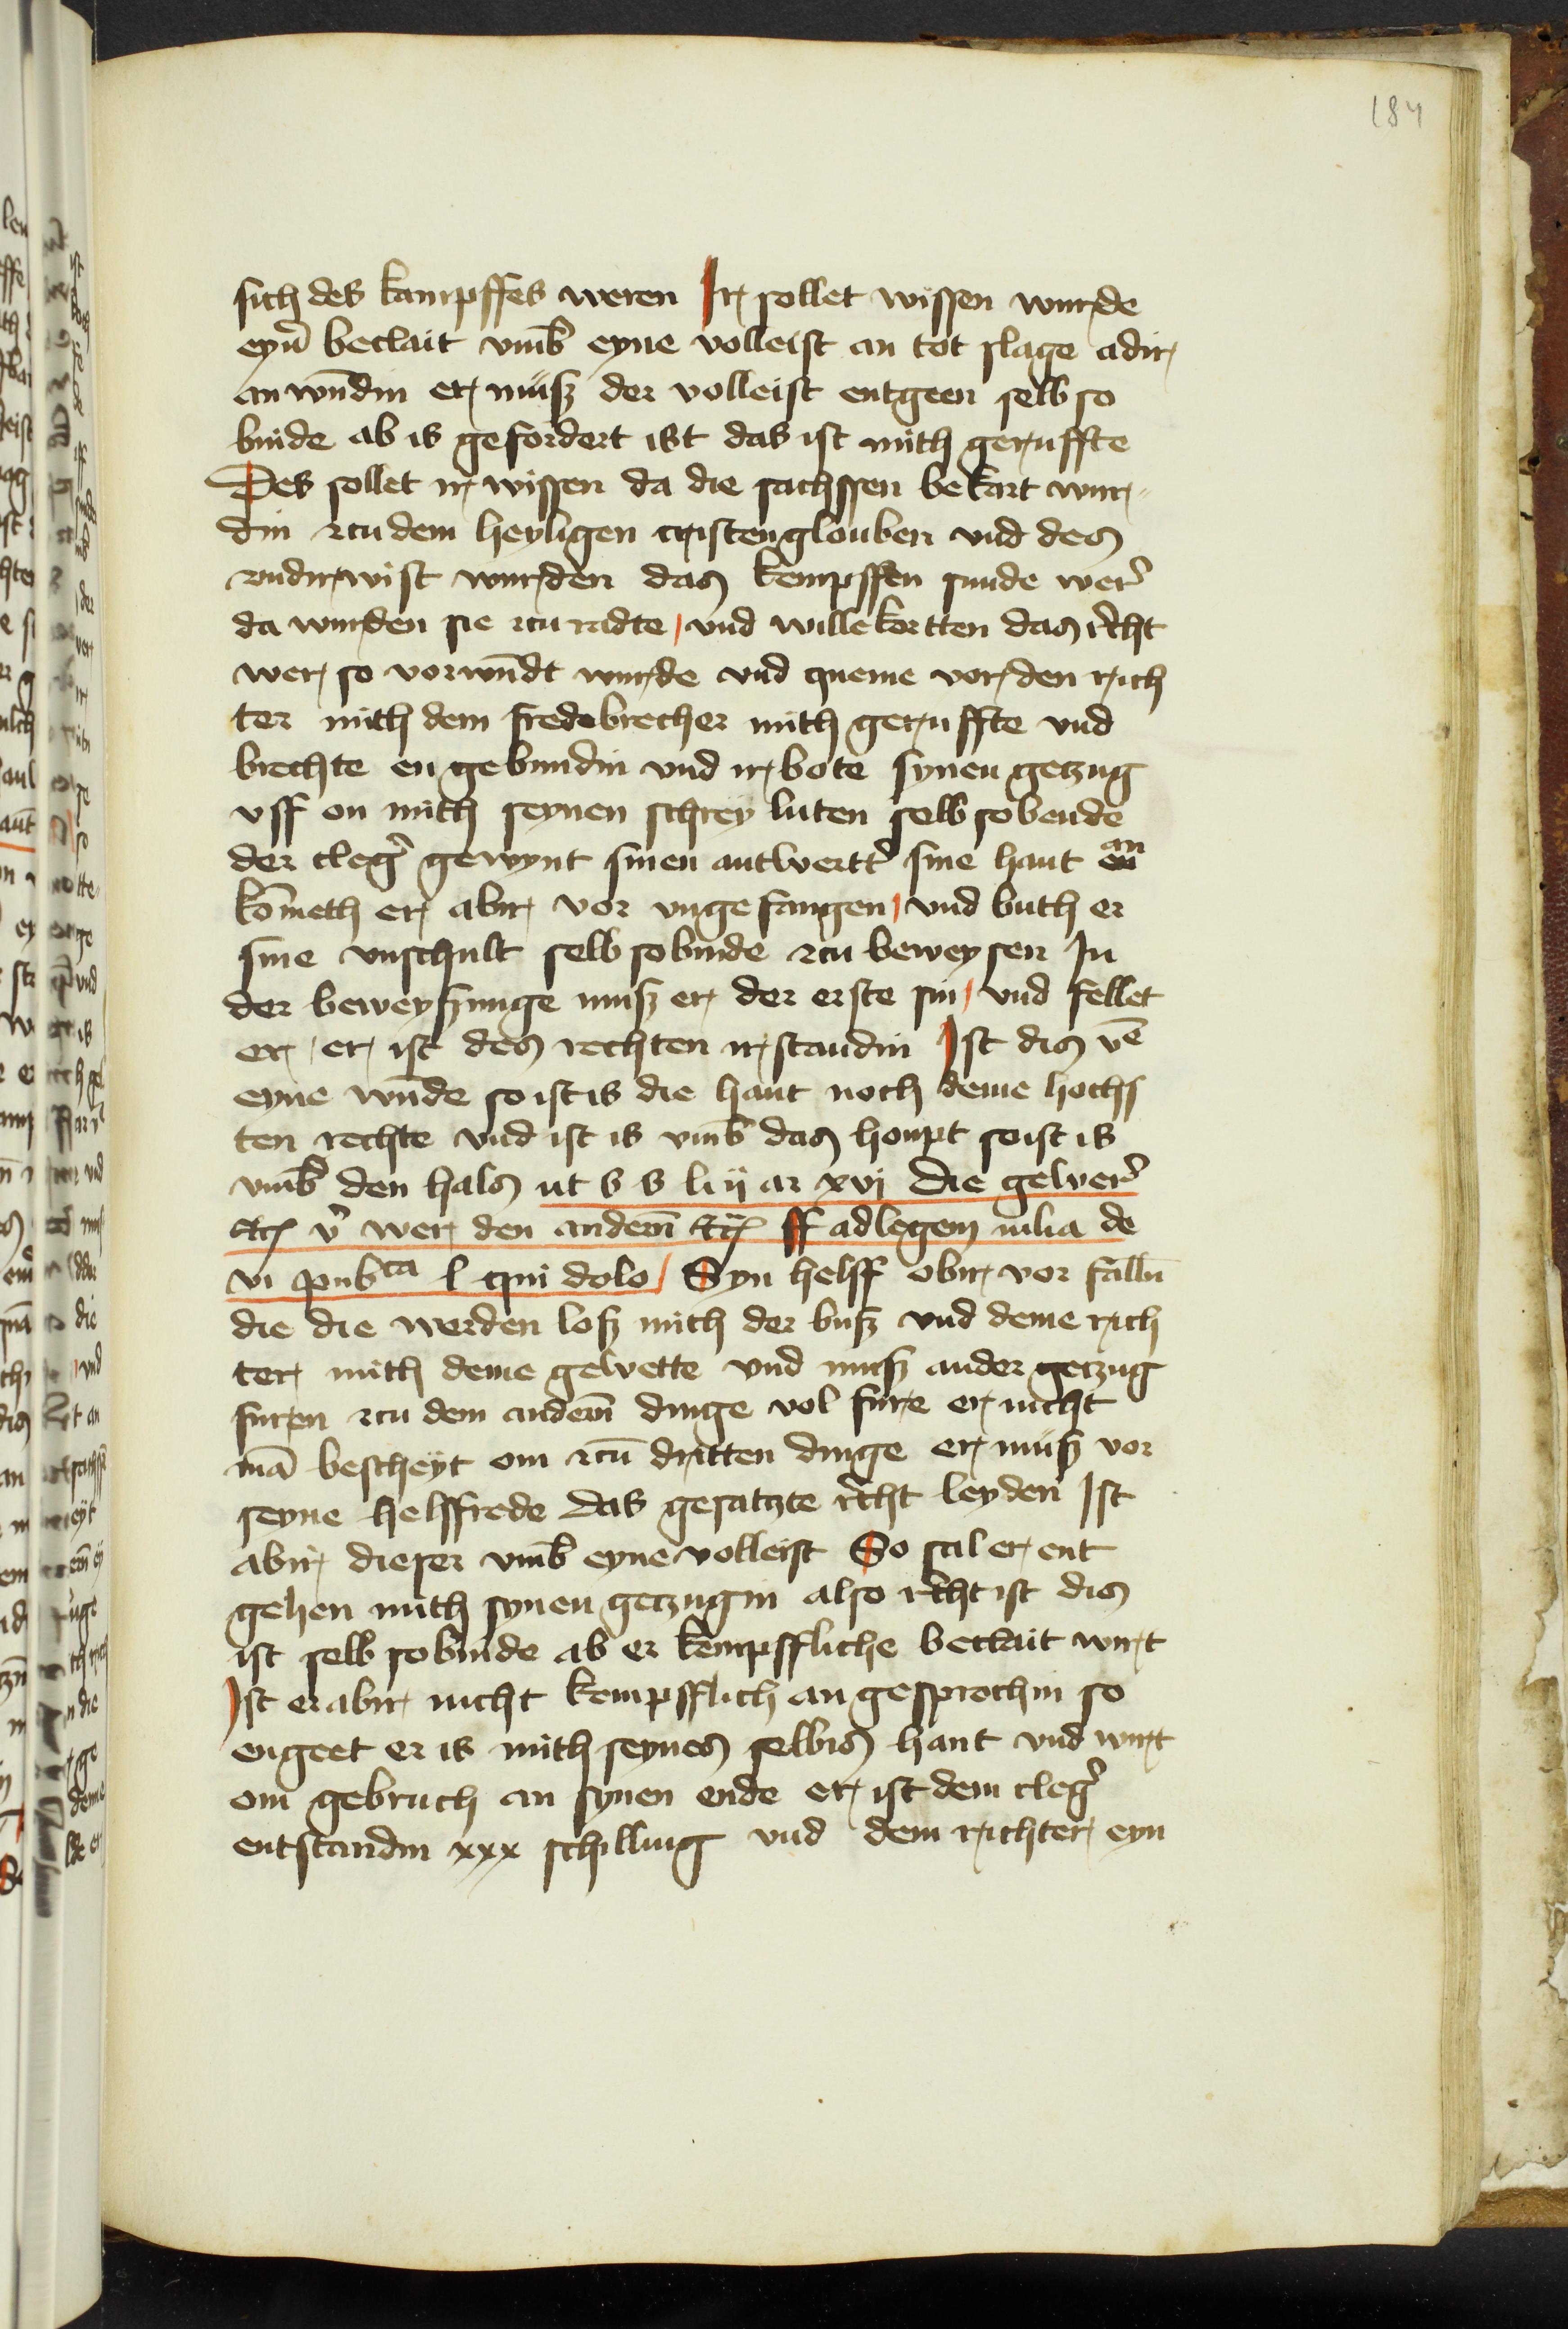 184
sich des kampffes weren Ir sollet wissen wurde
eyn̄ beclait vmb̄ eyne volleist an tot slage adir
an wūdin er müsz der volleist entgeen selb so
binde ab is gefordert ist das ist mith geruffte
Des sollet ir wissen da die sachssen bekart wur
din zcu dem heyligen cristenglouben vnd des
vndirwist wurden das kempffen sunde wer̄
da wurden sie zcu radte / vnd willekortten das rc̄ht
wer so vorwūdt wurde vnd queme vor den rich
ter mith dem fredebrecher mith geruffte vnd
brechte en gebundin vnd ir bote synen getzug
vff on mith seynen schrey luten selb sobende
der cleg̾ gewynt sinen antwertt̾ sine hant an
kōmeth er abir vor vngefangen / vnd buth er
sine vnschult selb sobinde zcu beweysen In
der beweyszunge musz er der erste sin / vnd fellet
er / er ist des rechten irstandin Ist dis vē
eyne wūde so ist is die hant noch deme hochs
ten rechte vnd ist is vmb̄ das houpt so ist is
vmb̄ den hals ut s s l ij ar xvj die gewer̄
etc v̾ wer den andern̄ etc ff ad legem iulia de
vi pub ca l qui dolo / Syn helff obir vor fallū
die die werden losz mith der busz vnd deme rich
ter mith deme gewette vnd musz ander getzug
furen zcu dem andern̄ dinge vol fure er nicht
mā bescheyt om zcū dritten dinge er müsz vor
seyne helffrede das gesatzte rc̄ht leyden Ist
abir dieser vmb̄ eyne volleist So sal er ent
gehen mith synen getzugin also rc̄ht ist dis
ist selb sobinde ab er kempffliche beclait wirt
Ist er abir nicht kempfflich an gesprochin so
engeet er is mith seynes selbis hant vnd wirt
om gebruch an synen ende er ist dem cleg̾
entstandin xxx schilling vnd dem richter eyn